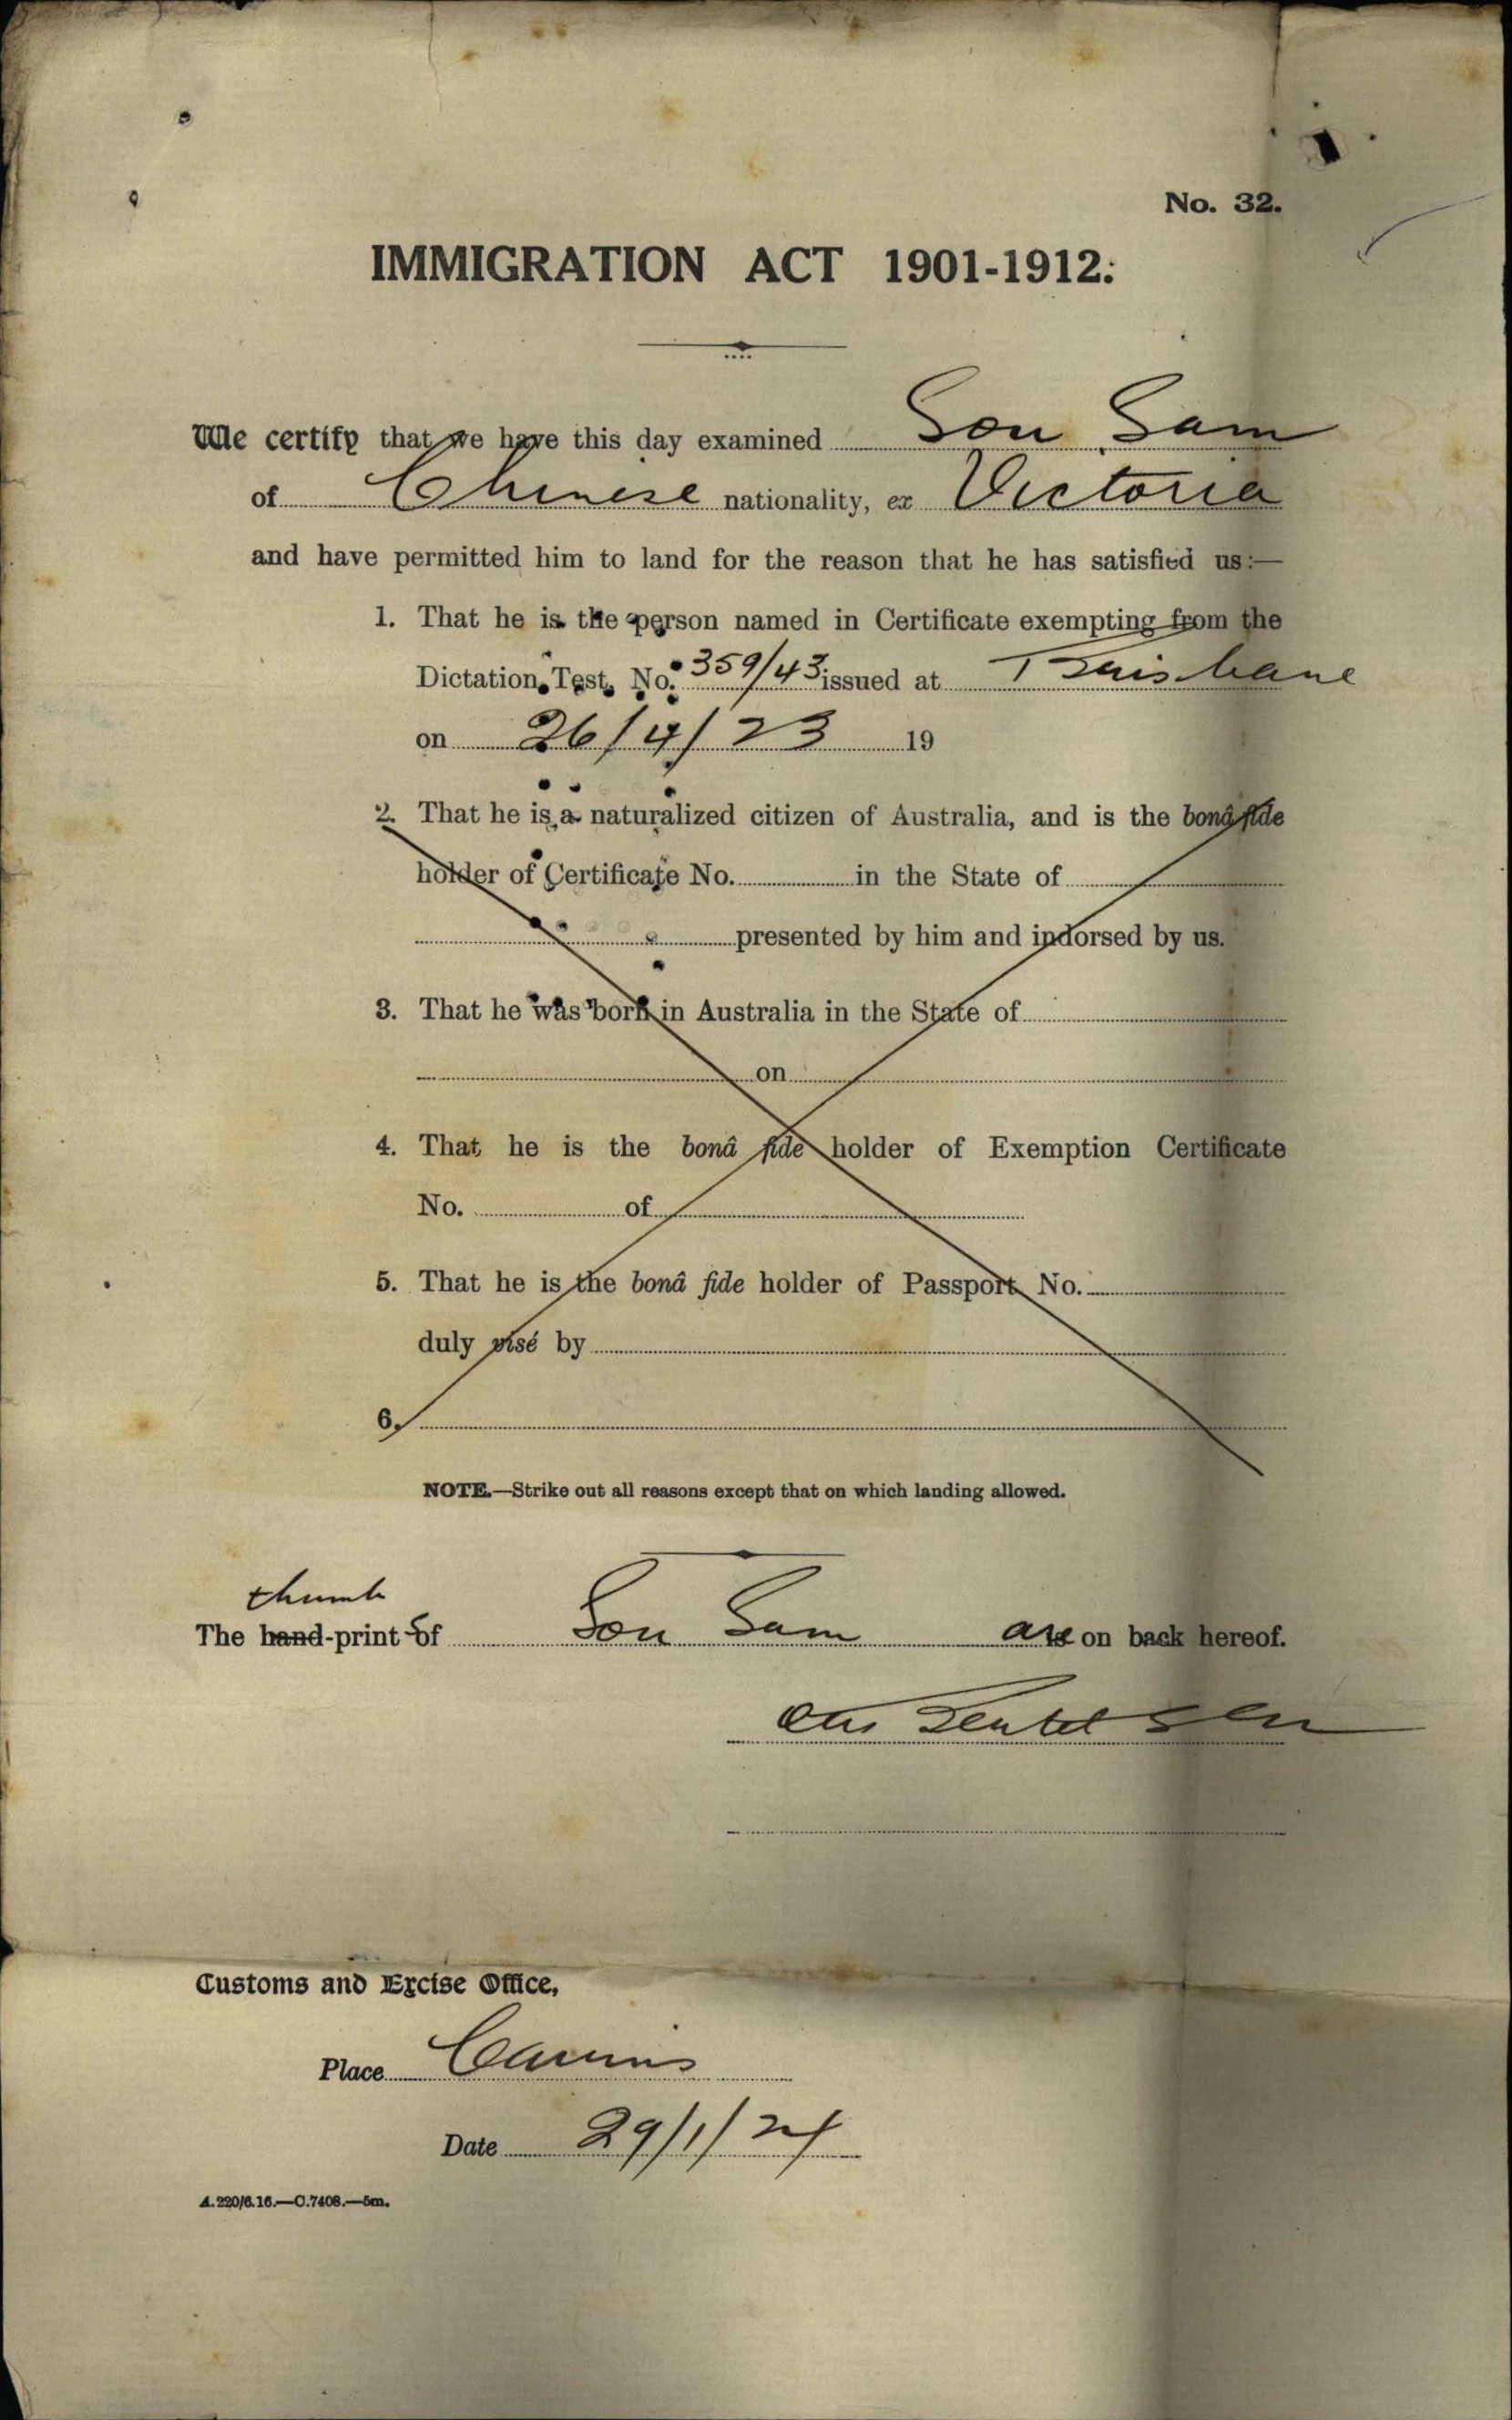 No. 32.
IMMIGRATION ACT 1901-1912.
We certify that we have this day examined Sou Sam
of Chinese nationality, ex Victoria
and have permitted him to land for the reason that he has satisfied us:—
1. That he is the person named in Certificate exempting from the
Dictation Test, No. 359/43 issued at Brisbane
on 26/4/23 19
2. That he is a naturalized citizen of Australia, and is the bonâ fide
holder of Certificate No. in the State of
presented by him and indorsed by us.
3. That he was born in Australia in the State of
on
4. That he is the bonâ fide holder of Exemption Certificate
No. of
5. That he is the bonâ fide holder of Passport No.
duly visé by
6.
NOTE.—Strike out all reasons except that on which landing allowed.
thumb
The hand-prints of Sou Sam are on back hereof.
Customs and Excise Office,
Place Cairns
Date 29/1/24
A.220/6.16.—C.7408.—5m.